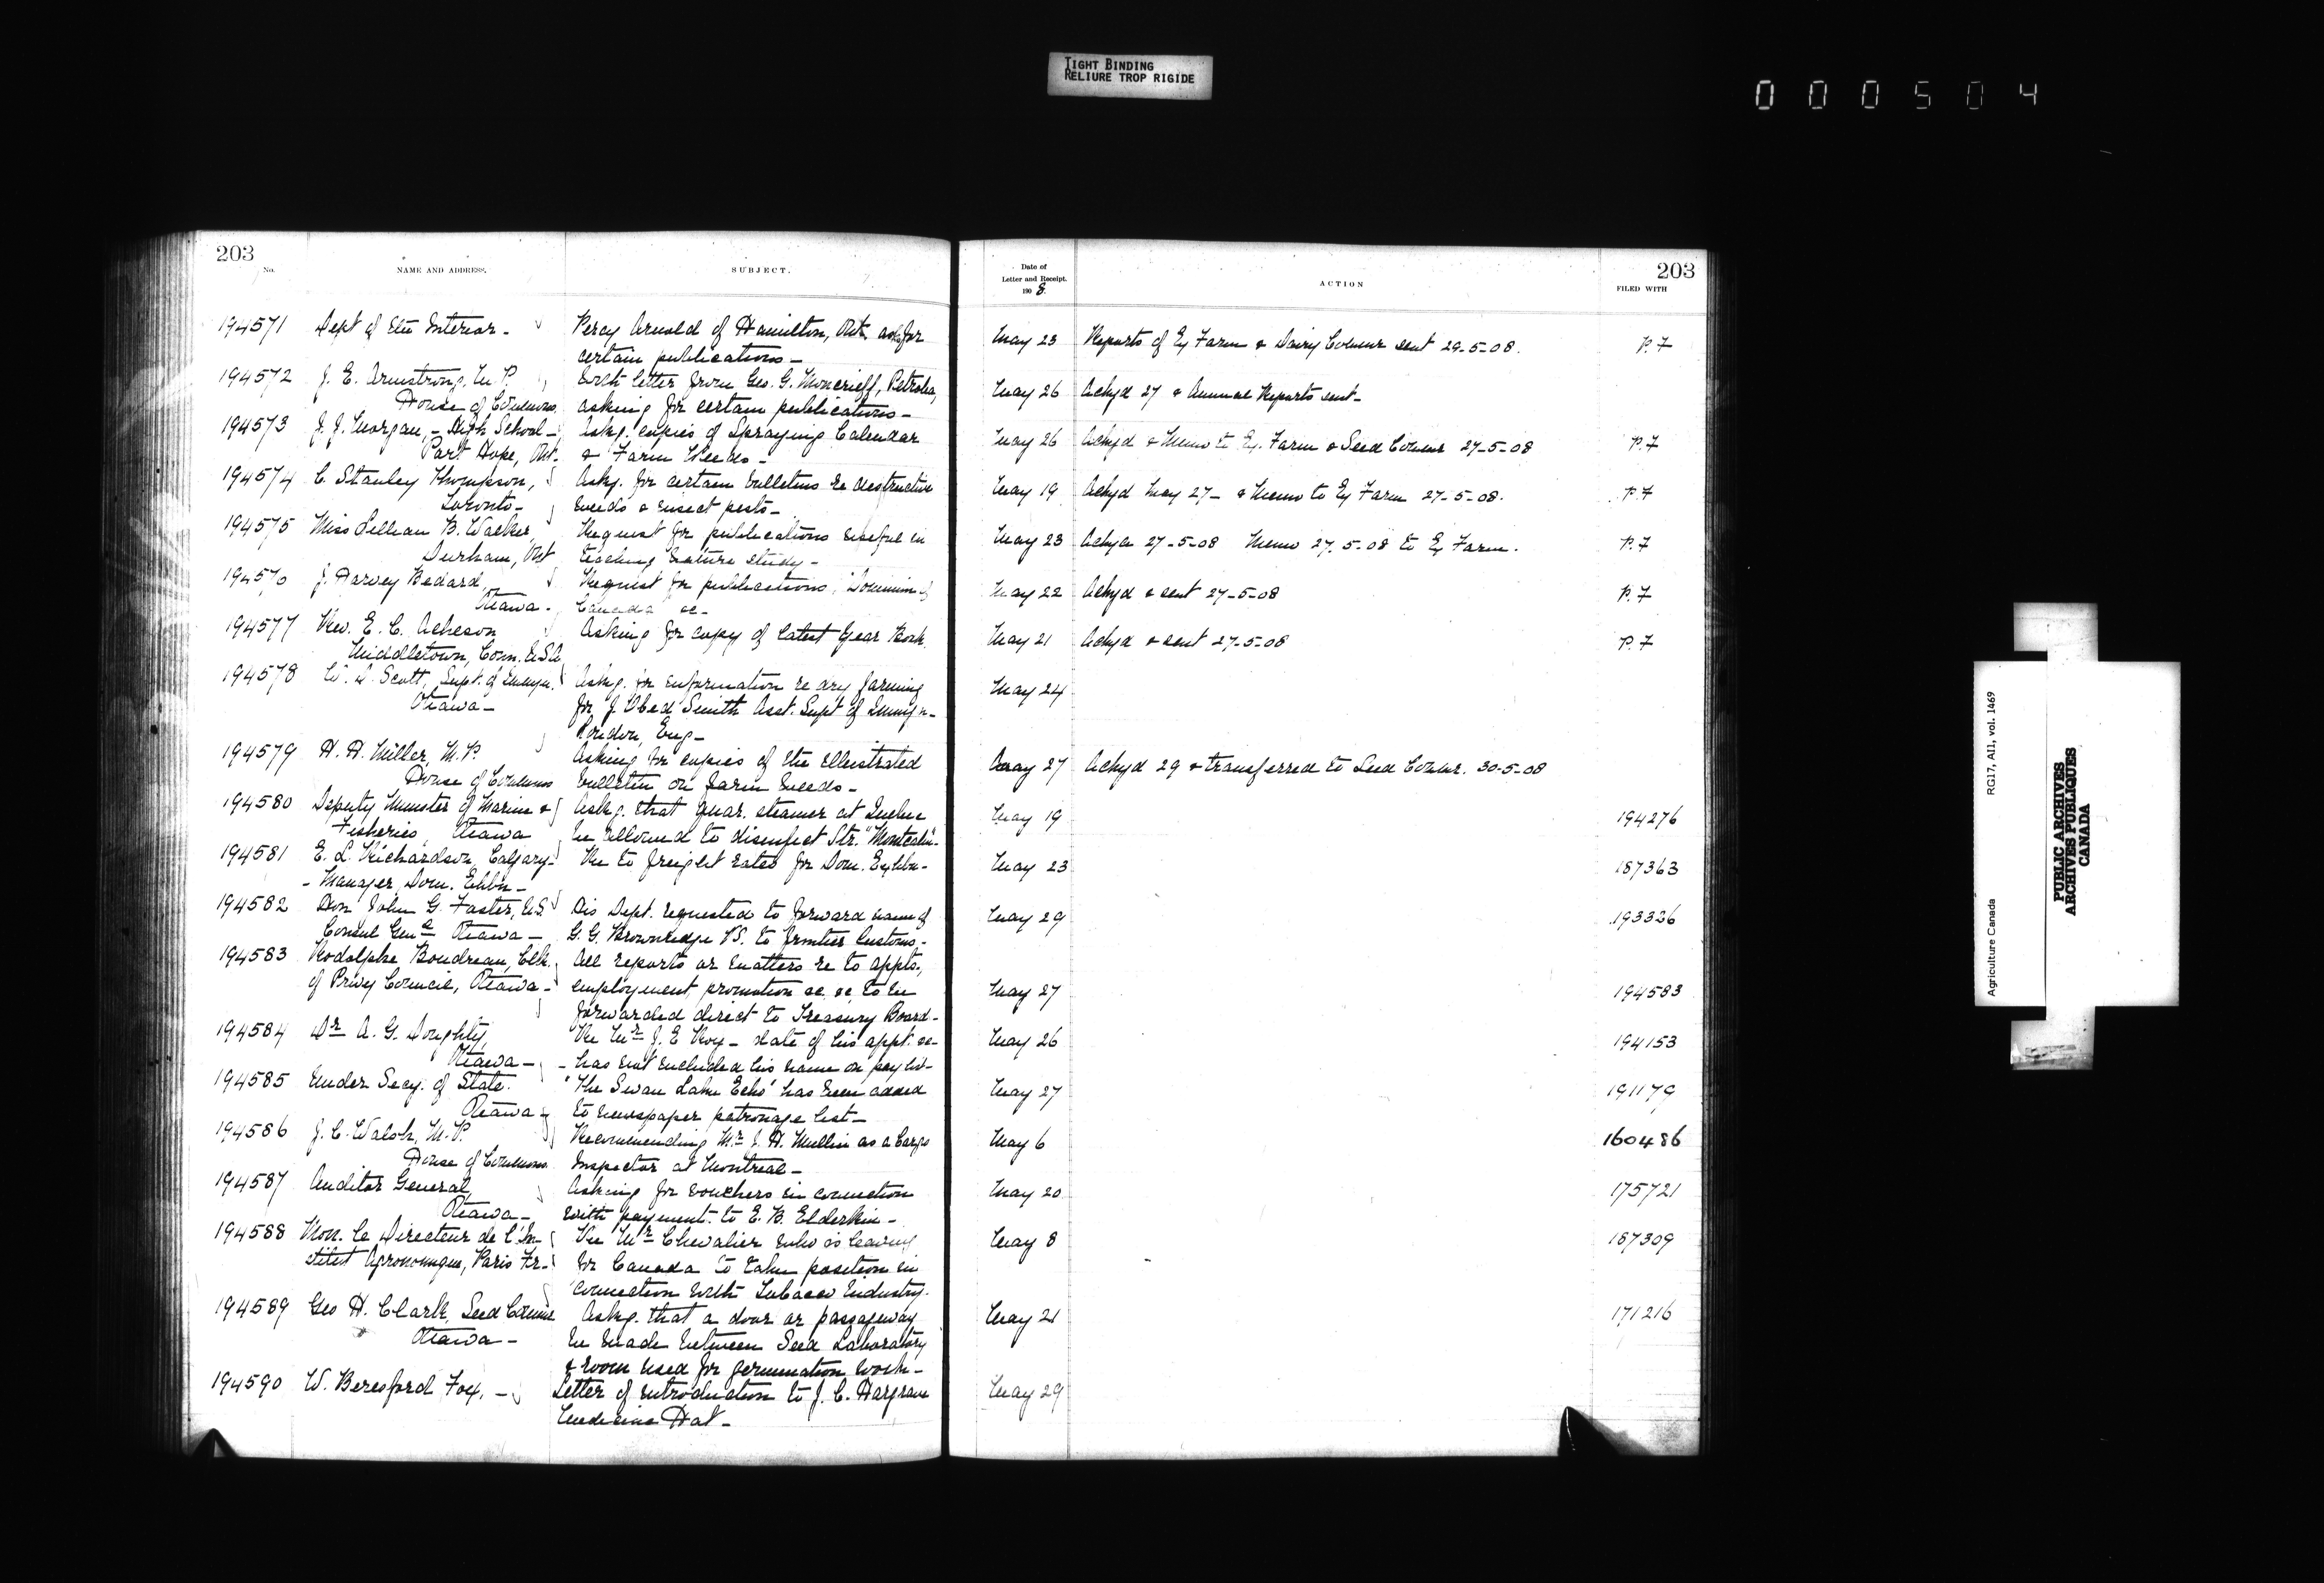 TIGHT BINDING
RELIURE TROP RIGIDE
000504
203
No.
NAME AND ADDRESS.
SUBJECT.
Date of
Letter and Receipt.
1908
ACTION
203
FILED WITH
194571 Dept of the Interior - Percy Arnold of Hamilton, Ont. asks for May 23 Reports of Ex Farm & Dairy Commr sent 29-5-08. P. 7
certain publications -
194572 J. E. Armstrong, M.P. With letter from Geo. G. Moncrieff, Petrolea, May 26 Ackgd 27 & Annual Reports sent -
House of Commons, asking for certain publications -
194573 J. J. Morgan, - High School - Askg. copies of Spraying Calendar May 26 Ackgd & Memo to Ex. Farm & Seed Commr 27-5-08 P. 7
Port Hope, Ont. & Farm Weeds -
194574 C. Stanley Thompson, Askg. for certain bulletins re destructive May 19 Ackgd May 27 - & Memo to Ex Farm 27-5-08. P. 7
Toronto - weeds & insect pests -
194575 Miss Lillian B. Walker, Request for publications useful in May 23 Ackgd 27-5-08 Memo 27.5.08 to Ex Farm. P. 7
Durham, Ont teaching nature study -
194576 J. Harvey Bedard, Request for publications, "Dominion of May 22 Ackgd & sent 27-5-08 P. 7
Ottawa - Canada" &c -
194577 Rev. E. C. Acheson Asking for copy of latest Year Book. May 21 Ackgd & sent 27-5-08 P. 7
Middletown, Conn. U.S.A
194578 W. D. Scott, Supt. of Immgn. Askg. for information re dry farming May 24
Ottawa - for J. Obed Smith Asst. Supt of Immign -
London, Eng -
194579 H. H. Miller, M.P. Asking for copies of the illustrated May 27 Ackgd 29 & transferred to Seed Commr. 30-5-08
House of Commons bulletin on farm weeds -
194580 Deputy Minister of Marine & Askg. that quar. steamer at Quebec May 19 194276
Fisheries, Ottawa be allowed to disinfect Str. "Montcalm" -
194581 E. L. Richardson, Calgary - Re to freight rates for Dom. Exhbn - May 23 187363
- Manager Dom. Exhbn -
194582 Hon John G. Foster, U.S. His Dept. requested to forward name of May 29 193326
Consul Genl Ottawa - G. G. Brownridge V.S. to frontier Customs -
194583 Rodolphe Boudreau, Clk. All reports or matters re to appts.,
of Privy Council, Ottawa - employment promotion &c. &c. to be May 27 194583
forwarded direct to Treasury Board -
194584 Dr A. G. Doughty, Re Mr J. E Roy - date of his appt. &c - May 26 194153
Ottawa - - has not included his name on pay list -
194585 Under Secy. of State. "The Swan Lake Echo" has been added May 27 191179
Ottawa - to newspaper patronage list -
194586 J. C. Walsh, M.P. Recommending Mr J. H. Mullin as a Cargo May 6 160486
House of Commons Inspector at Montreal -
194587 Auditor General, Asking for vouchers in connection May 20 175721
Ottawa - with payment to E. B. Elderkin -
194588 Mon. le Directeur de l'In- Re Mr Chevalier who is leaving May 8 187309
stitut Agronomique, Paris Fr - for Canada to take position in
connection with Tobacco Industry.
194589 Geo H. Clark, Seed Commr Askg. that a door or passageway May 21 171216
Ottawa - be made between Seed Laboratory
& room used for germination work -
194590 W. Beresford Fox, - Letter of introduction to J. C. Hargrave May 29
Medicine Hat -
Agriculture Canada RG17, AII, vol. 1469
PUBLIC ARCHIVES
ARCHIVES PUBLIQUES
CANADA